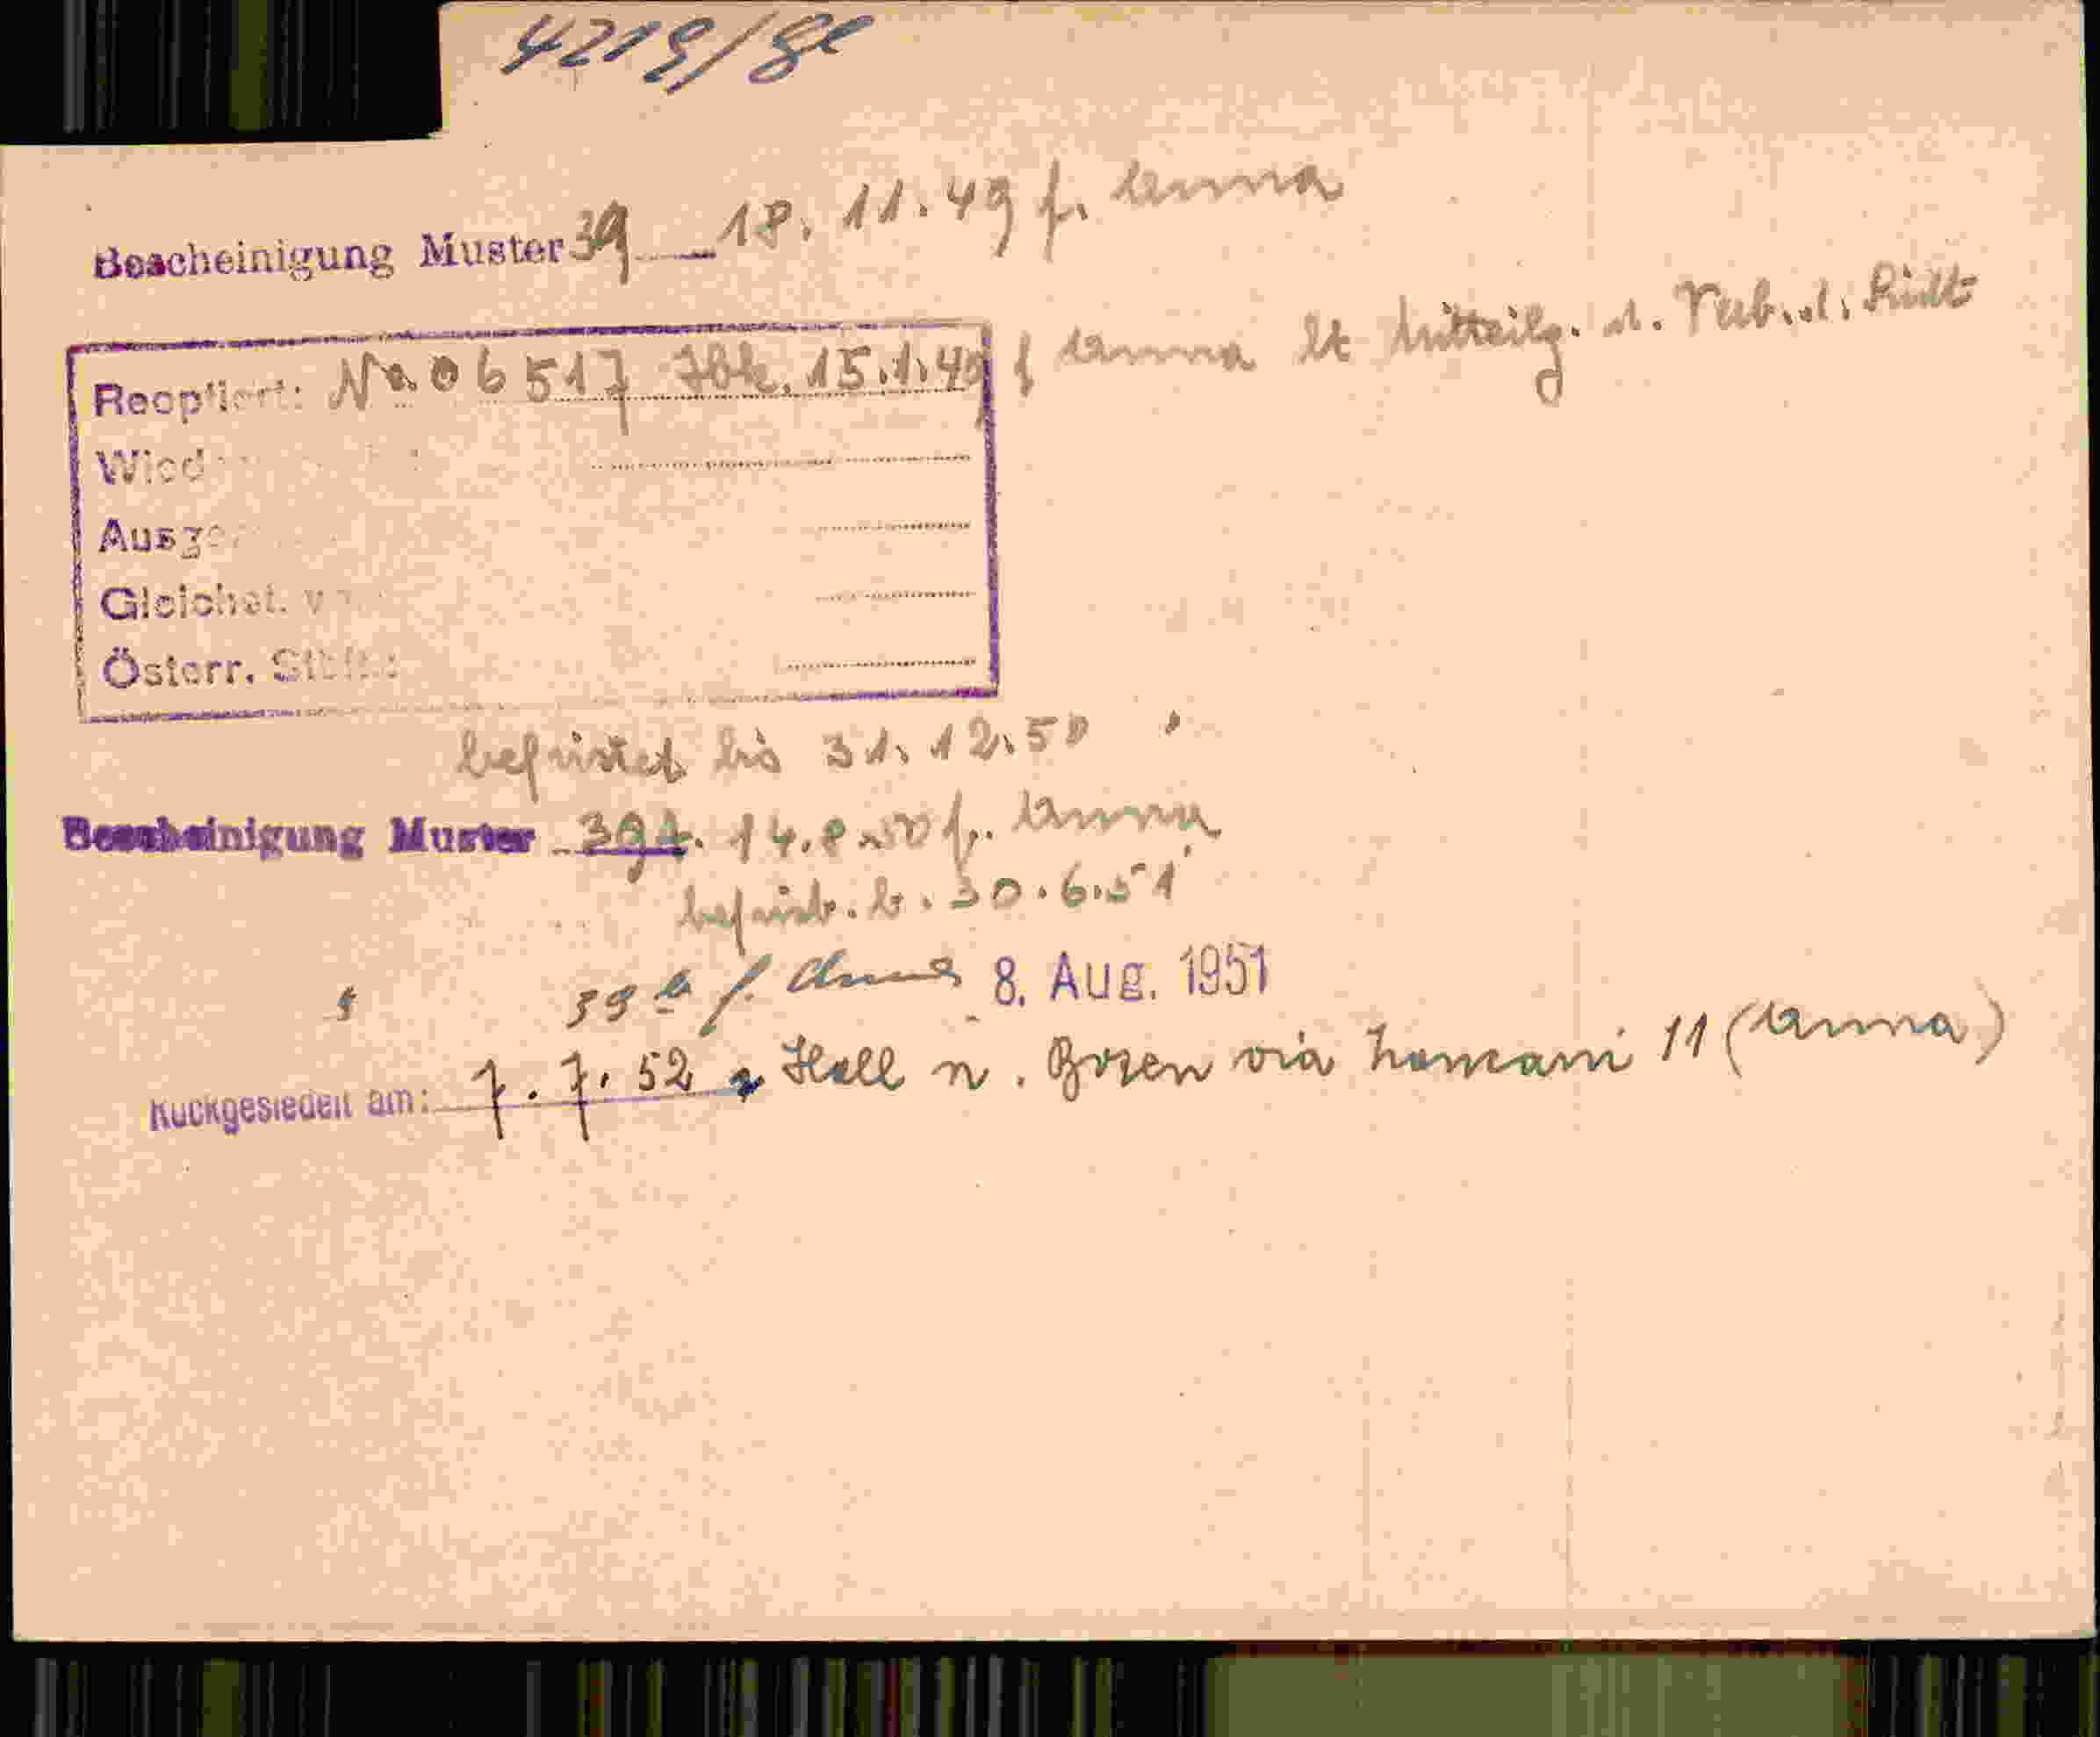 4219/
Bescheinigung Muster 39 18. 11. 49 f. Anna
Reoptiert: No 06517 Ibk. 15.1.49 f Anna lt Mitteilg. d. Verb. d. Südt
Wied
Ausge
Gleichst. v
Österr. St
befristet bis 31. 12. 50
Bescheinigung Muster 39a. 14.8.50 f. Anna
befrist. b. 30.6.51
" 39a f. Anna 8. Aug. 1951
Rückgesiedelt am: 7. 7. 52 v Hall n. Bozen via 11 (Anna)